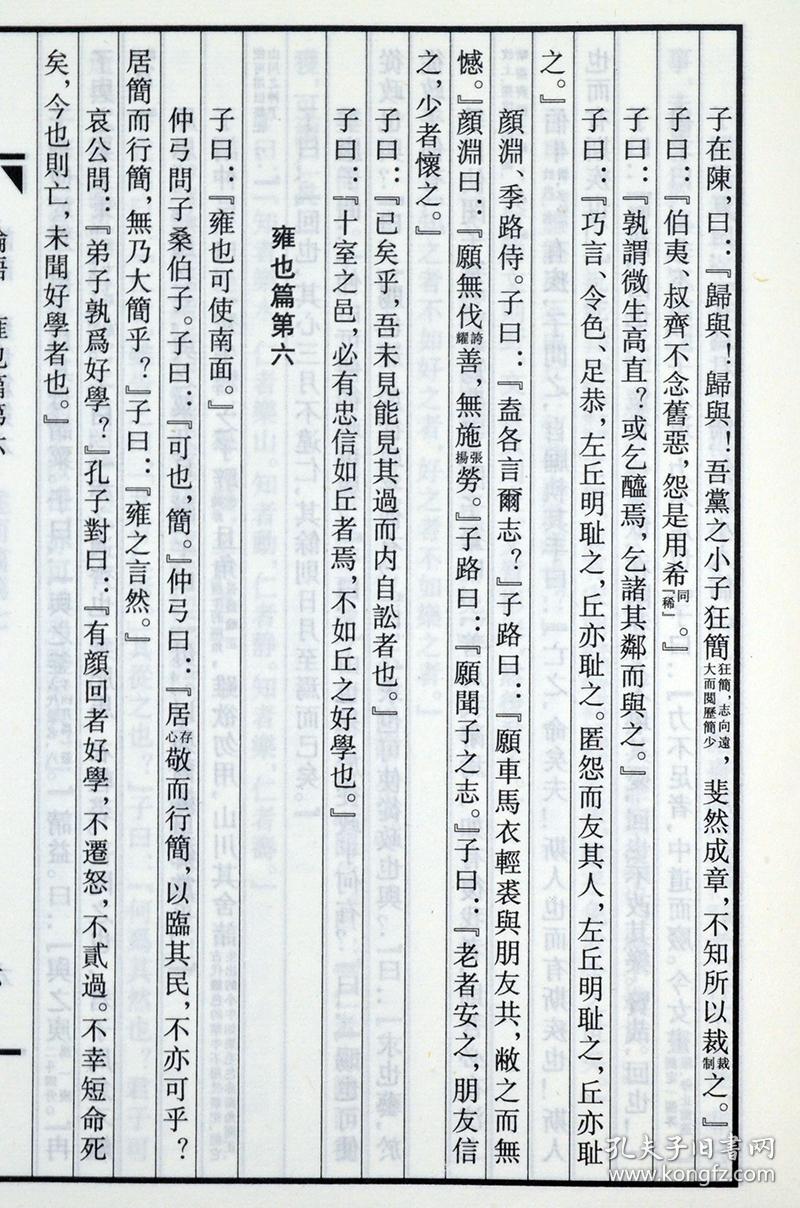 子在陳，曰：『歸與！歸與！吾黨之小子狂簡狂簡，志向遠大而閱歷簡少，斐然成章，不知所以裁裁制之。』
子曰：『伯夷、叔齊不念舊惡，怨是用希同「稀」。』
子曰：『孰謂微生高直？或乞醯焉，乞諸其鄰而與之。』
子曰：『巧言、令色、足恭，左丘明耻之，丘亦耻之。匿怨而友其人，左丘明耻之，丘亦耻
之。』
顔淵、季路侍。子曰：『盍各言爾志？』子路曰：『願車馬衣輕裘與朋友共，敝之而無
憾。』顔淵曰：『願無伐誇耀善，無施張揚勞。』子路曰：『願聞子之志。』子曰：『老者安之，朋友信
之，少者懷之。』
子曰：『已矣乎，吾未見能見其過而内自訟者也。』
子曰：『十室之邑，必有忠信如丘者焉，不如丘之好學也。』
雍也篇第六
子曰：『雍也可使南面。』
仲弓問子桑伯子。子曰：『可也，簡。』仲弓曰：『居存心敬而行簡，以臨其民，不亦可乎？
居簡而行簡，無乃大簡乎？』子曰：『雍之言然。』
哀公問：『弟子孰爲好學？』孔子對曰：『有顔回者好學，不遷怒，不貳過。不幸短命死
矣，今也則亡，未聞好學者也。』
孔夫子旧書网
www.kongfz.com